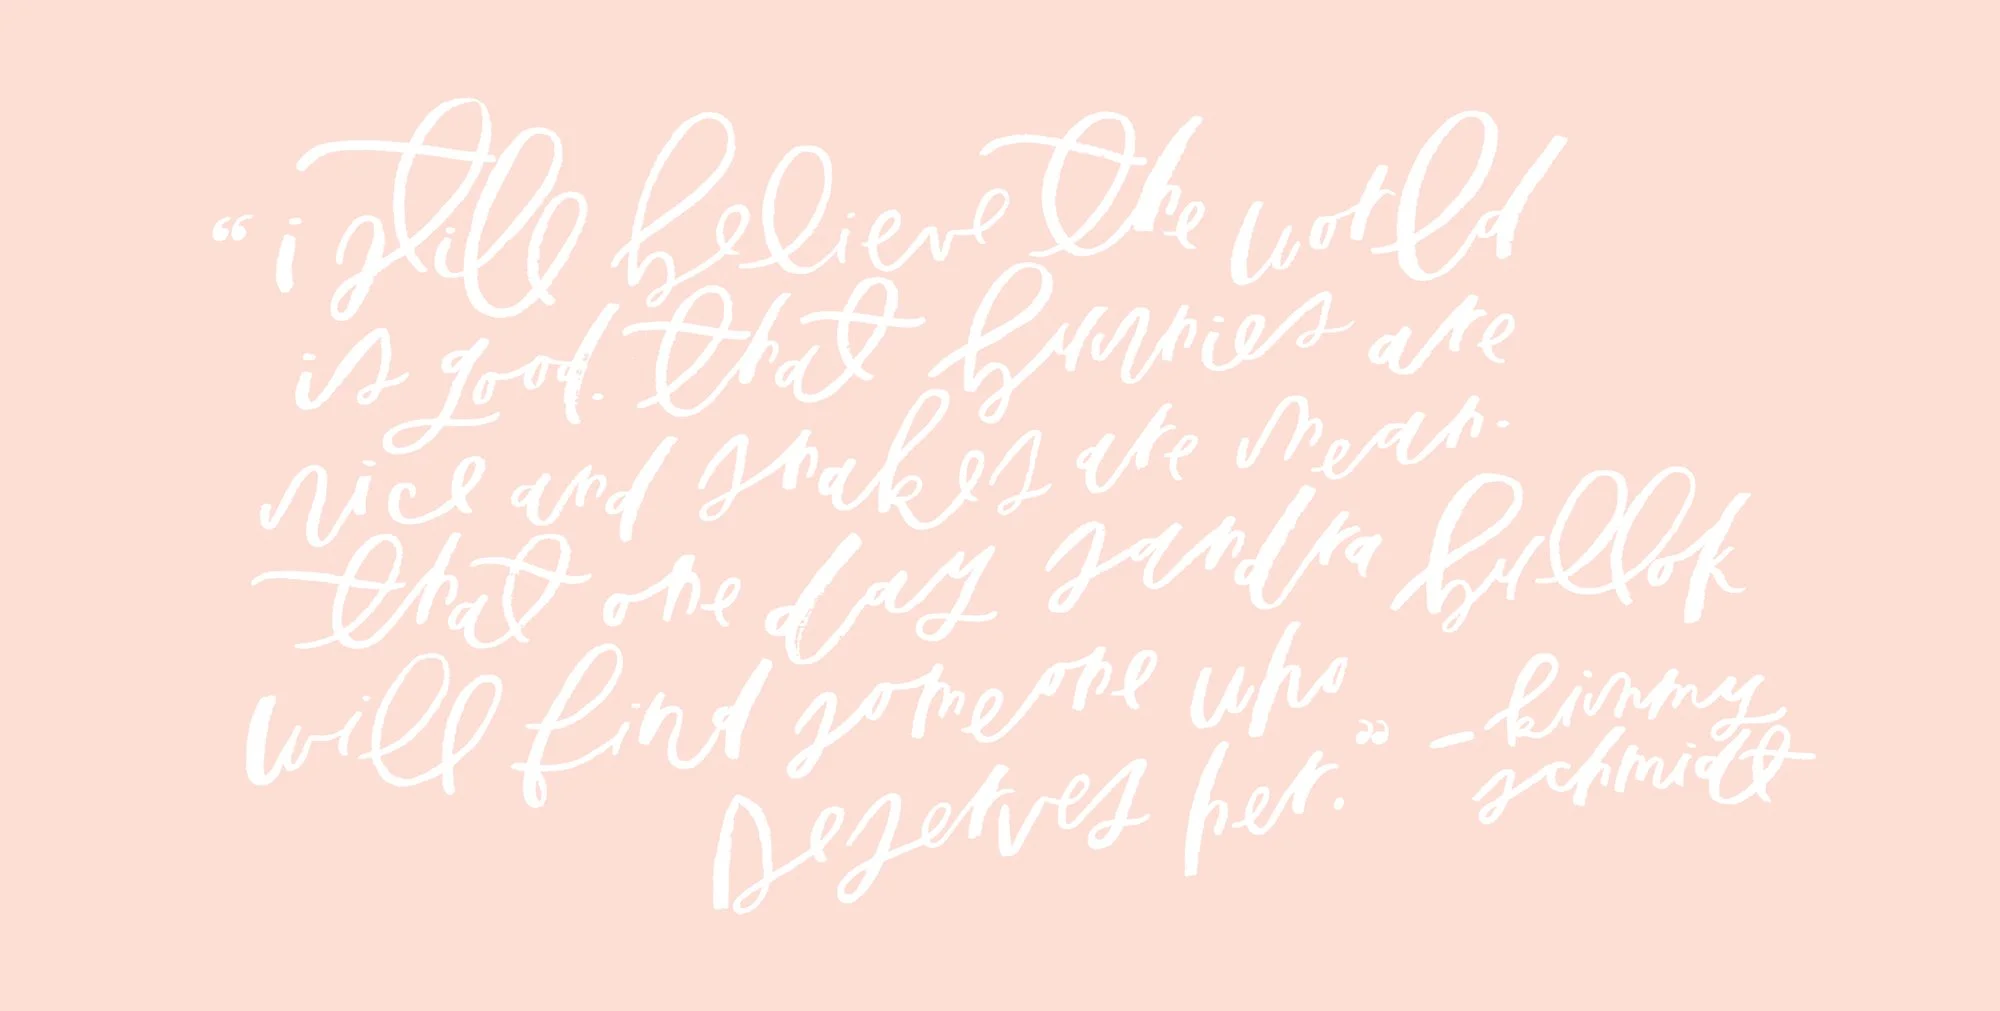 “i still believe the world
is good. that bunnies are
nice and snakes are mean.
that one day sandra bullok
will find someone who
Deserves her.”
- kimmy
schmidt